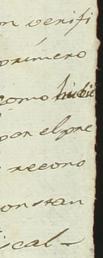 n verifi
primero
como hubie
por el pre
recono
constan
ical